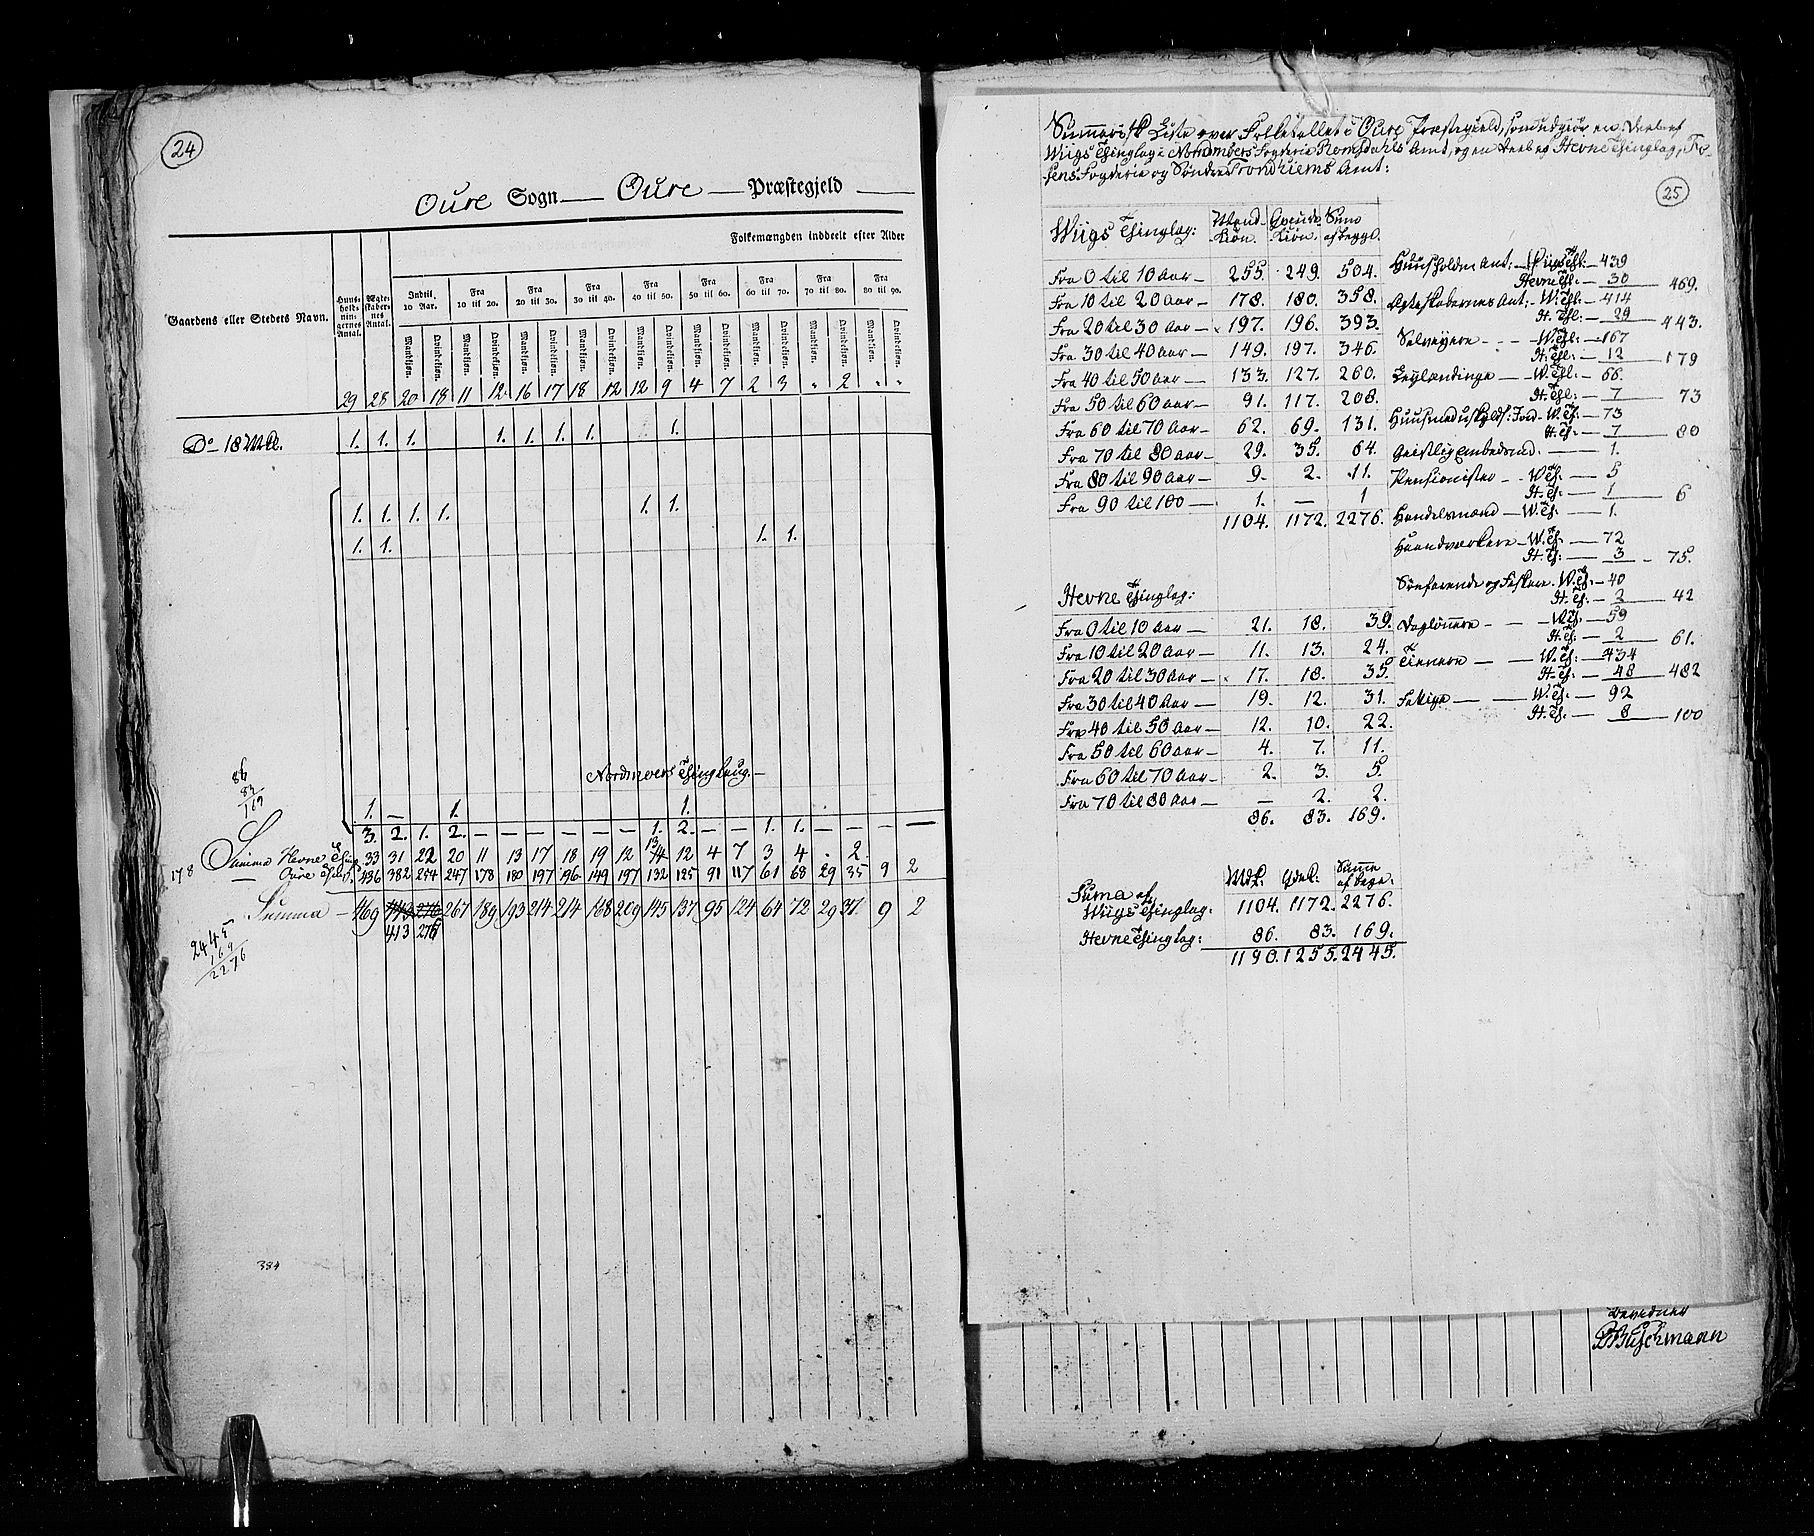 24
Oure Sogn — Oure — Præstegjeld
Folkemængden inddeelt efter Alder
Gaardens eller Stedets Navn.
Huus- holdningernes Antal.
Ægteskabernes Antal.
Indtil 10 Aar.
Fra 10 til 20.
Fra 20 til 30.
Fra 30 til 40.
Fra 40 til 50.
Fra 50 til 60.
Fra 60 til 70.
Fra 70 til 80.
Fra 80 til 90.
Mandkiøn. Qvindekiøn. Mandkiøn. Qvindekiøn. Mandkiøn. Qvindekiøn. Mandkiøn. Qvindekiøn. Mandkiøn. Qvindekiøn. Mandkiøn. Qvindekiøn. Mandkiøn. Qvindekiøn. Mandkiøn. Qvindekiøn. Mandkiøn. Qvindekiøn.
29 28 20 18 11 12 16 17 18 12 12 9 4 7 2 3 " 2 " "
Do 18 Mtl. 1. 1. 1. 1. 1. 1. 1. 1.
1. 1. 1. 1. 1. 1.
1. 1. 1. 1.
Nordmoers Thinglaug.—
1. — 1. 1.
3. 2. 1. 2. — — — — — — 1. 2. — — 1. 1. — — — —
86
83
169
Summa Hevne Thing 33 31 22 20 11 13 17 18 19 12 13 12 4 7 3 4 . 2
178 Oure 436 382 254 247 178 180 197 196 149 197 132 125 91 117 61 68 29 35 9 2
Summa — 469 443 276 267 189 193 214 214 168 209 145 137 95 124 64 72 29 37. 9 2
413 276
2445
169
2276
384
Summarisk Liste over Folketallet i Oure Præstegield, som udgiør en Deel af
Wiigs Thinglag i Nordmøers Fogderie Romsdahls Amt, og en deel af Hevne Thinglag, Fo-
sens Fogderie og Søndre Trondhiems Amt:
25
Wiigs Thinglag: Mand- Kiøn. Qvinde Kiøn. Sum af begge.
Fra 0 til 10 Aar — 255. 249. 504.
Fra 10 til 20 Aar — 178. 180. 358.
Fra 20 til 30 Aar — 197. 196. 393.
Fra 30 til 40 Aar — 149. 197. 346.
Fra 40 til 50 Aar — 133. 127. 260.
Fra 50 til 60 Aar — 91. 117. 208.
Fra 60 til 70 Aar — 62. 69. 131.
Fra 70 til 80 Aar — 29. 35. 64.
Fra 80 til 90 Aar — 9. 2. 11.
Fra 90 til 100 — 1. — 1
1104. 1172. 2276.
Hevne Thinglag:
Fra 0 til 10 Aar — 21. 18. 39.
Fra 10 til 20 Aar — 11. 13. 24.
Fra 20 til 30 Aar — 17. 18. 35.
Fra 30 til 40 Aar — 19. 12. 31.
Fra 40 til 50 Aar — 12. 10. 22.
Fra 50 til 60 Aar — 4. 7. 11.
Fra 60 til 70 Aar — 2. 3. 5.
Fra 70 til 80 Aar — — 2. 2.
86. 83. 169.
Mdk: Qdek: Summe af begge:
Suma af
Wiigs Thinglag: 1104. 1172. 2276.
Hevne Thinglag: 86. 83. 169.
1190. 1255. 2445.
Huusholdn Ant: — Wiigs Thl. — 439
Hevne Thl. — 30 469.
Ægteskabernes Ant: — W. Thl. — 414
H. Thl. — 29 443.
Selveyere — W. Thl: — 167
H. Thl: — 12 179
Leylændinge — W. Thl. — 66.
H. Thl: — 7 73
Huusmænd — W. Th: — 73
H. Th: — 7 80
Geistlig Embedsmd. — 1.
Pensionister — W. Th: — 5
H. Th: — 1 6
Handelsmænd — W. Th: — 1.
Haandværkere — W. Th: — 72
H. Th: — 3 75.
Søefarende og Fiskere. W. Th: — 40
H. Th: — 2 42
Daglønnere — W. Th: — 59
H. Th: — 2 61.
Tienere — W. Th: — 434
H. Th: — 48 482
Fattige — W. Th: — 92
H. Th: — 8 100
Buschmann